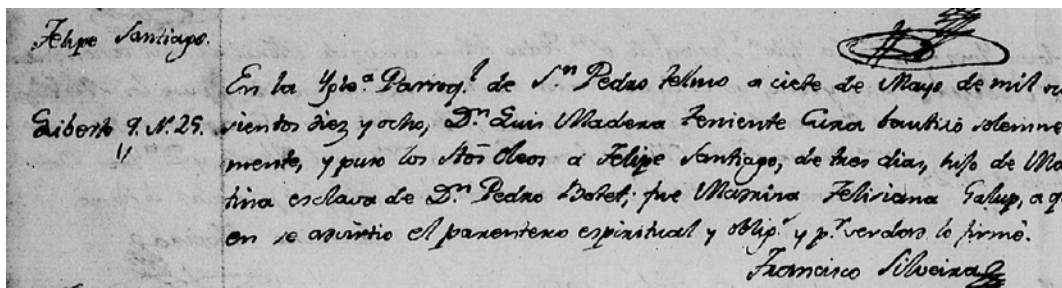 Felipe Santiago.
En la Ygla. Parroql. de Sn. Pedro Telmo a ciete de Mayo de mil
Liberto q. N. 25. sientos diez y ocho, Dn. Luis Madera teniente Cura bautisó solemne
mente, y puso los Stos Oleos à Felipe Santiago, de tres dias, hijo de Ma
tina esclava de Dn. Pedro Botet; fue Madrina Felisiana Galup, a q
en se advirtio el parenteso espiritual y oblign. y pr. verdad lo firmé.
Francisco Silveira